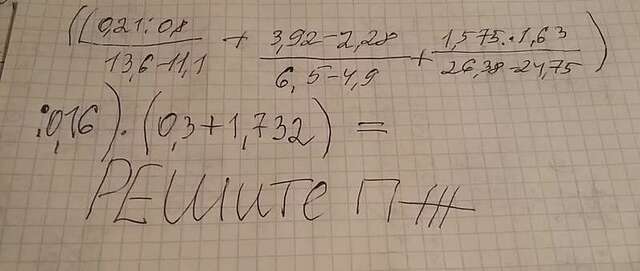 ((0,21:0,8/13,6-11,1 + 3,92-2,28/6,5-4,9 + 1,575·1,63/26,38-24,75)
:0,16)·(0,3+1,732)=
РЕШИТЕ ПЖ